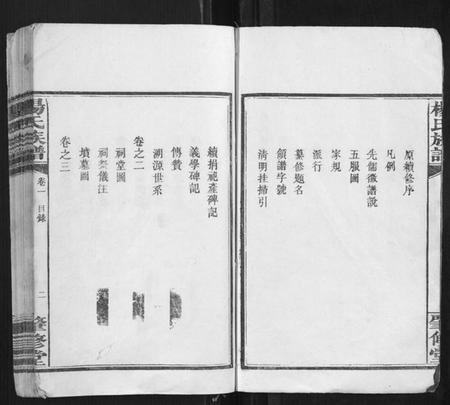 楊氏族譜
肇修堂
原續修序
凡例
先儒徵譜說
五服圖
家規
派行
纂修題名
領譜字號
清明挂掃引
續捐祀產碑記
義學碑記
傳贊
溯源世系
卷之二
祠堂圖
祠祭儀注
墳墓圖
卷之三
楊氏族譜
卷一
目錄
二
肇修堂